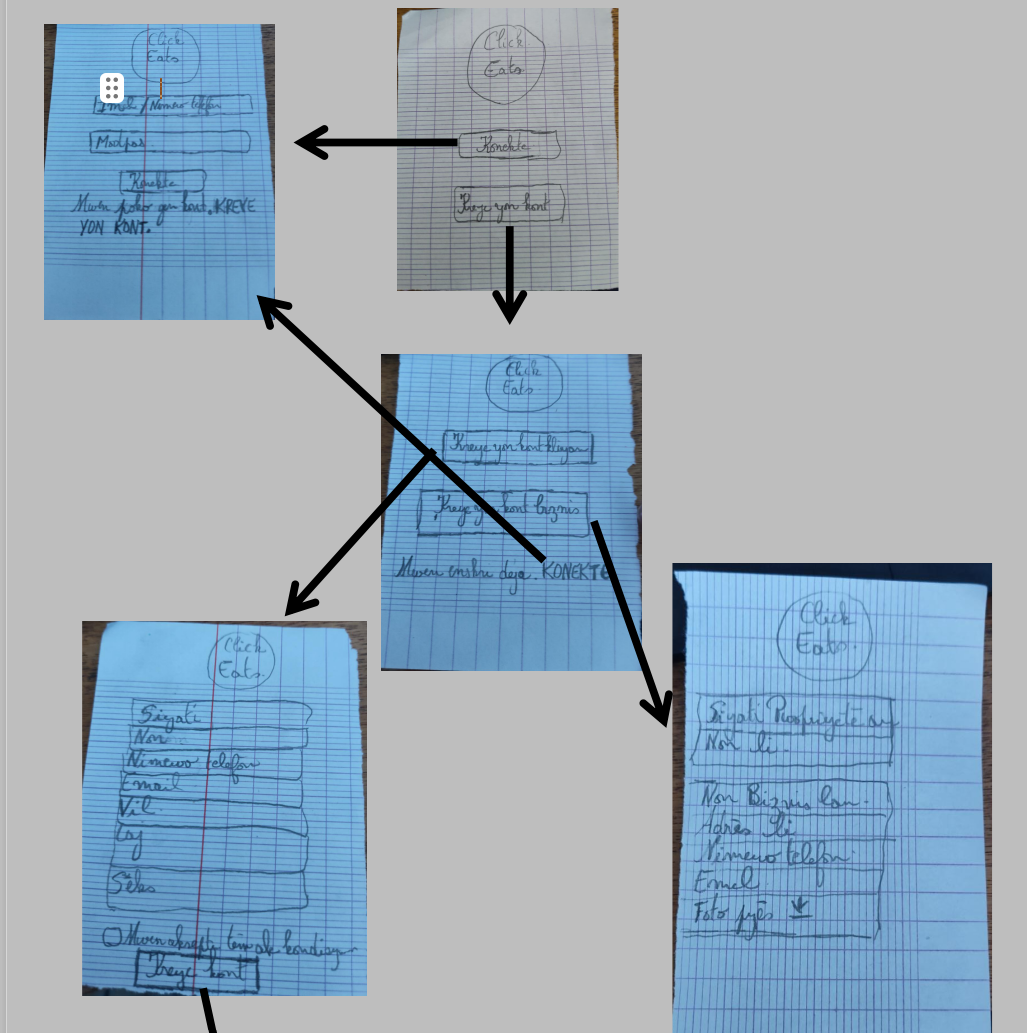 Click
Eats
Imel / Nimewo telefon
Modpas
Konekte
Mwen poko gen kont. KREYE
YON KONT.
Click
Eats
Konekte
Kreye yon kont
Click
Eats
Kreye yon kont kliyan
Kreye yon kont biznis
Mwen enskri deja. KONEKTE
Click
Eats.
Siyati
Non
Nimewo telefon
Email
Vil
Laj
Sèks
Mwen aksepte tèm ak kondisyon
Kreye kont
Click
Eats.
Siyati Pwopriyetè an
Non li
Non Biznis lan.
Adrès li
Nimewo telefon
Emel
Foto pyès